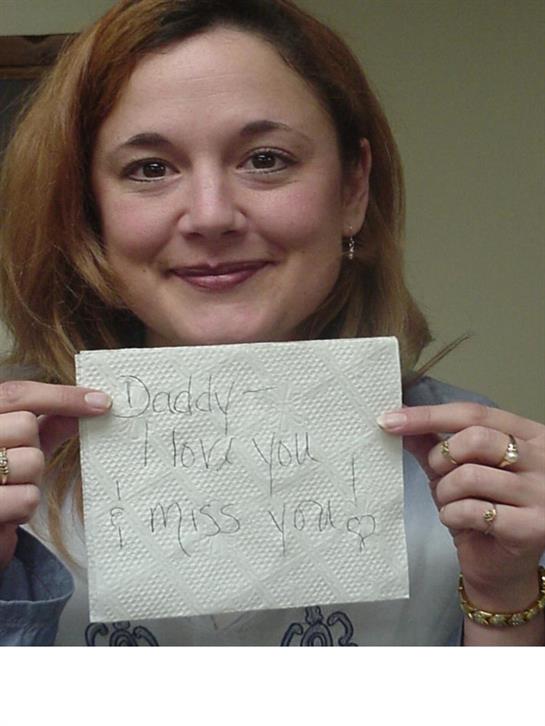 Daddy-
I love you
& miss you! ♡